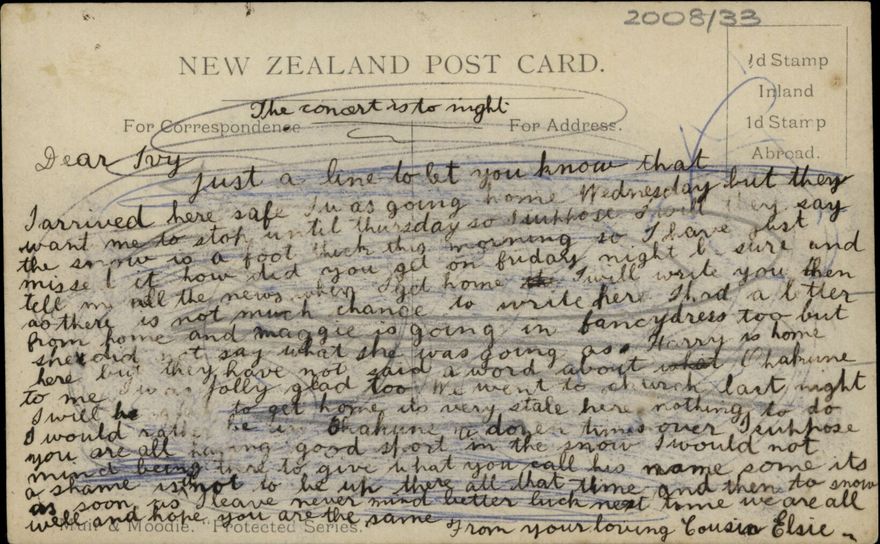 2008/33
NEW ZEALAND POST CARD.
1d Stamp
Inland
1d Stamp
Abroad.
The concert is to night
For Correspondence
For Address.
Dear Ivy
Just a line to let you know that
I arrived here safe I was going home Wednesday but they
want me to stop until thursday so I suppose I will they say
the snow is a foot thick this morning so I have just
missed it how did you get on friday night be sure and
tell my all the news when I get home I will write you then
as there is not much chance to write here I had a letter
from home and maggie is going in fancydress too but
she did not say what she was going as. Harry is home
here but they have not said a word about Ohakune
to me I was jolly glad too We went to church last night
I will to get home its very stale here nothing to do
I would be in Ohakune a dozen times over I suppose
you are all having good sport in the snow I would not
mind being there to give what you call his name some its
a shame not to be up there all that time and then to snow
as soon as I leave never mind better luck next time we are all
well and hope you are the same From your loving Cousin Elsie
Muir & Moodie. Protected Series.